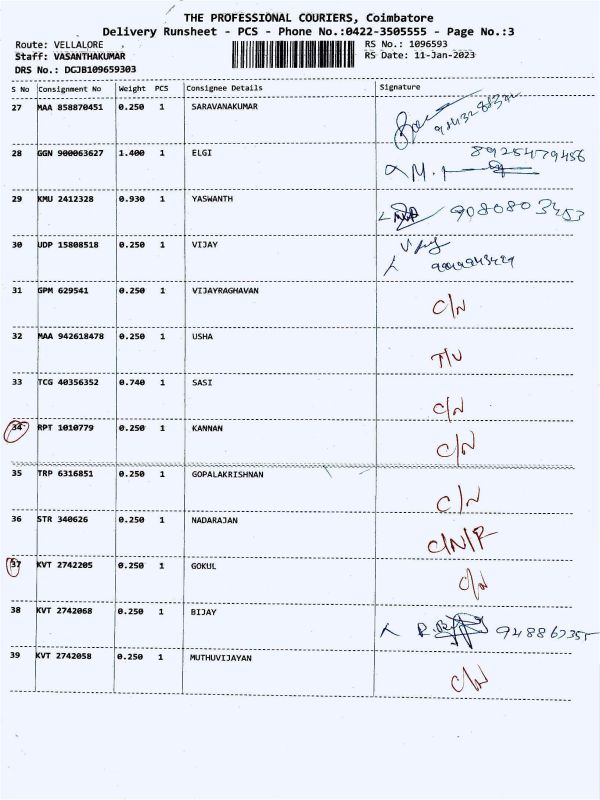 THE PROFESSIONAL COURIERS, Coimbatore
Delivery Runsheet - PCS - Phone No.:0422-3505555 - Page No.:3
Route: VELLALORE RS No.: 1096593
Staff: VASANTHAKUMAR RS Date: 11-Jan-2023
DRS No.: DGJB109659303
S No Consignment No Weight PCS Consignee Details Signature
27 MAA 858870451 0.250 1 SARAVANAKUMAR
28 GGN 900063627 1.400 1 ELGI 89254 79456
29 KMU 2412328 0.930 1 YASWANTH 9080803453
30 UDP 15808518 0.250 1 VIJAY
31 GPM 629541 0.250 1 VIJAYRAGHAVAN C/N
32 MAA 942618478 0.250 1 USHA T/U
33 TCG 40356352 0.740 1 SASI C/N
34 RPT 1010779 0.250 1 KANNAN C/N
35 TRP 6316851 0.250 1 GOPALAKRISHNAN C/N
36 STR 340626 0.250 1 NADARAJAN C/N/R
37 KVT 2742205 0.250 1 GOKUL C/N
38 KVT 2742068 0.250 1 BIJAY
39 KVT 2742058 0.250 1 MUTHUVIJAYAN C/N